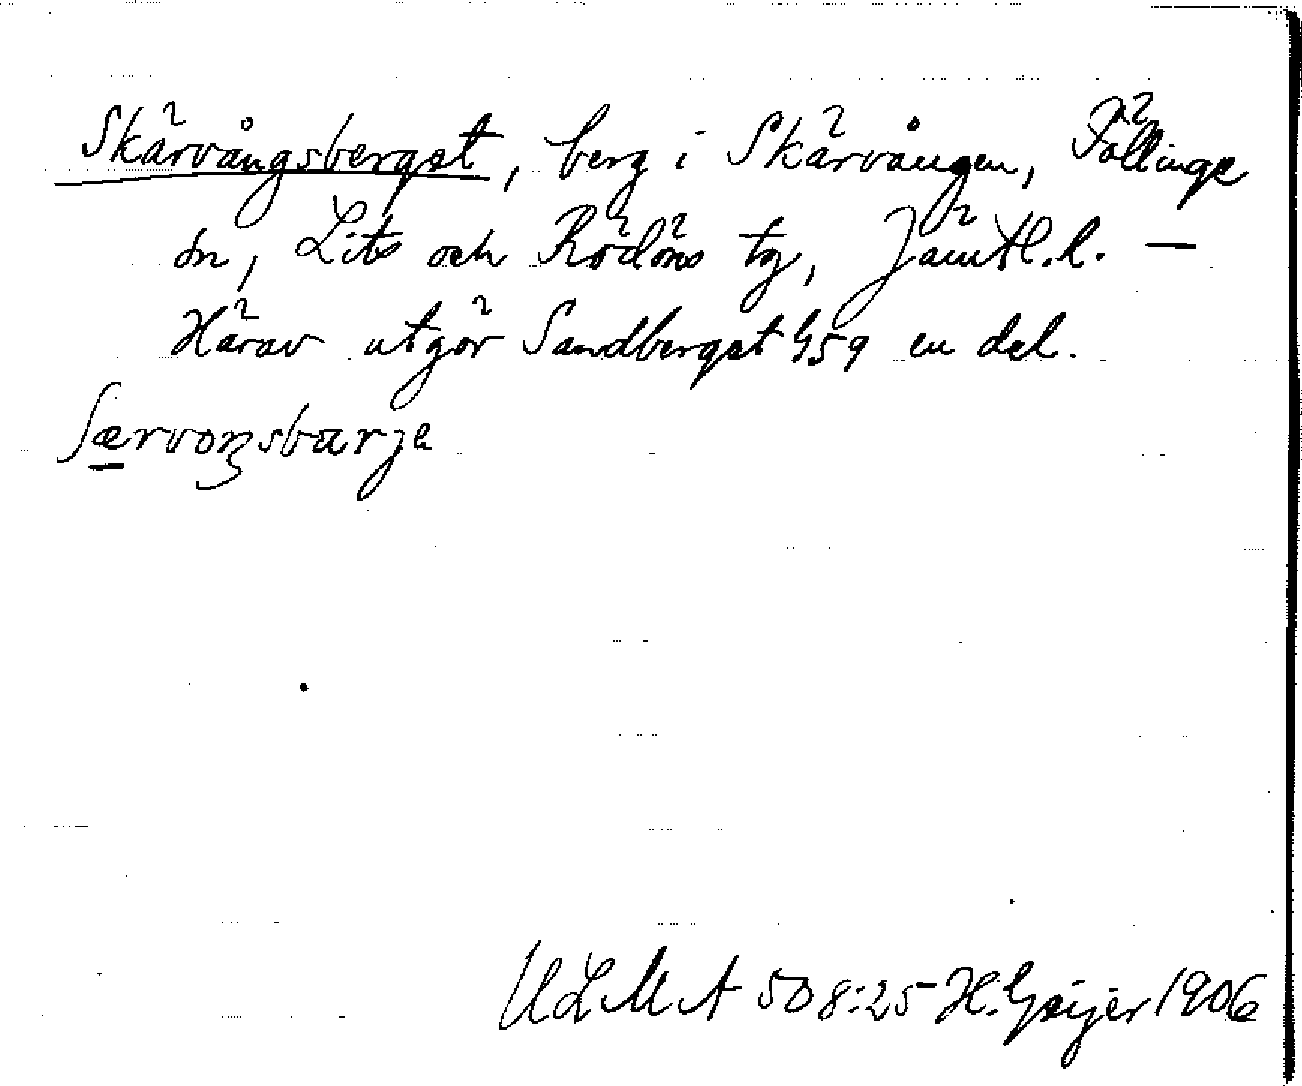 Skärvångsberget, berg i Skärvången, Föllinge
sn, Lits och Rödöns tg, Jämtl. l. —
Härav utgör Sandberget 459 en del.
ʃærvoŋsbarje
ULMA 508:25 H. Geijer 1906